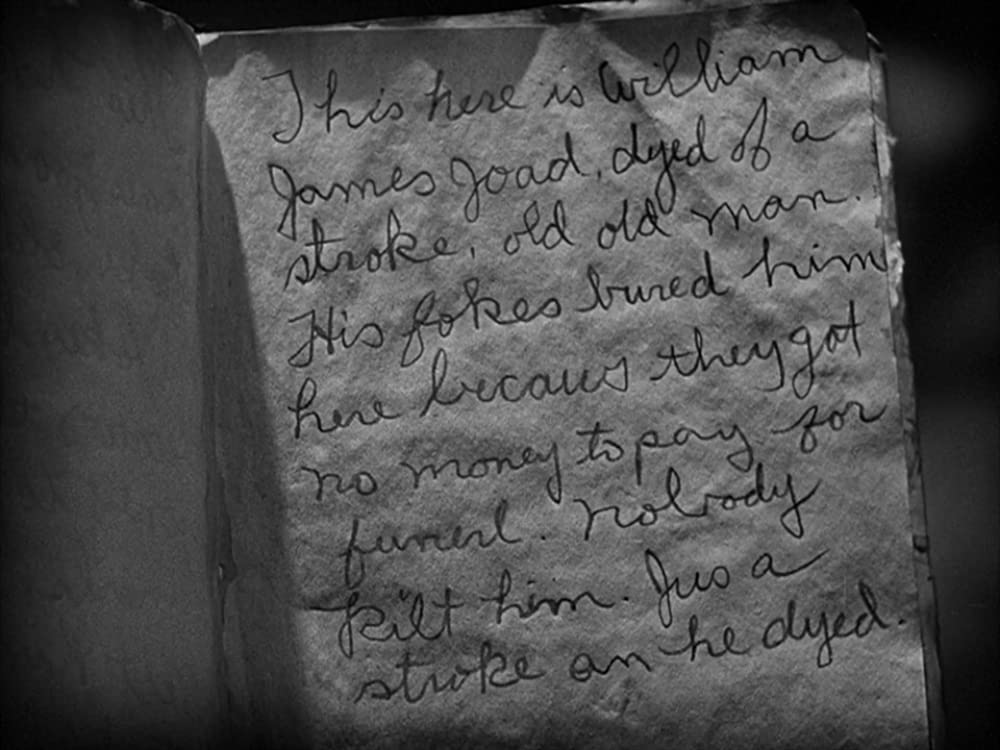 This here is William
James Joad, dyed of a
stroke, old old man.
His fokes bured him
here becaus they got
no money to pay for
funerl. Nobody
kilt him. Jus a
stroke an he dyed.